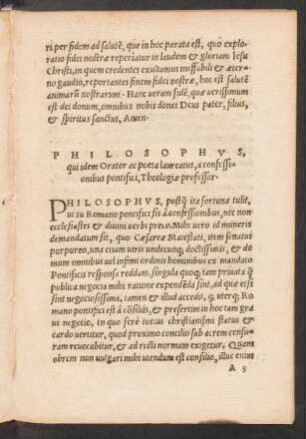 ri per fidem ad salutē, quæ in hoc parata est, quo explo⸗
ratio fidei nostræ reperiatur in laudem & gloriam Iesu
Christi, in quem credentes exultamus ineffabili & æter⸗
no gaudio, reportantes finem fidei nostræ, hoc est salutē
animarū nostrarum. Hanc veram fidē, quæ verissimum
est dei donum, omnibus nobis donet Deus pater, filius,
& spiritus sanctus, Amen.
PHILOSOPHVS,
qui idem Orator ac poeta laureatus, a confessi⸗
onibus pontifici, Theologiæ professor.
PHILOSOPHVS, postq̄ ita fortuna tulit,
ut tu Romano pontifici sis à confessionibus, nec non
ecclesiastes & diuini uerbi preco. Mihi uero id muneris
demandatum sit, quo Cæsareæ Maiestati, item senatui
purpureo, una etiam uiris undecunq; doctissimis, & de
mum omnibus uel infimi ordinis hominibus ex mandato
Pontificis responsa reddam, singula quoq; tam priuata q̄
publica negocia mihi ratione expendēda sint, ad quæ etsi
sint negociosissima, tamen & illud accedit, q, uterq; Ro
mano pontifici est à cōsilijs, & presertim in hoc tam gra
uis negocio, in quo ferè totius christianismi status &
cardo uertitur, quod proximo concilio sub acrem censu⸗
ram reuocabitur, & ad recti normam exigetur, Quam
obrem non uulgari mihi utendum est consilio, illuc enim
A 5